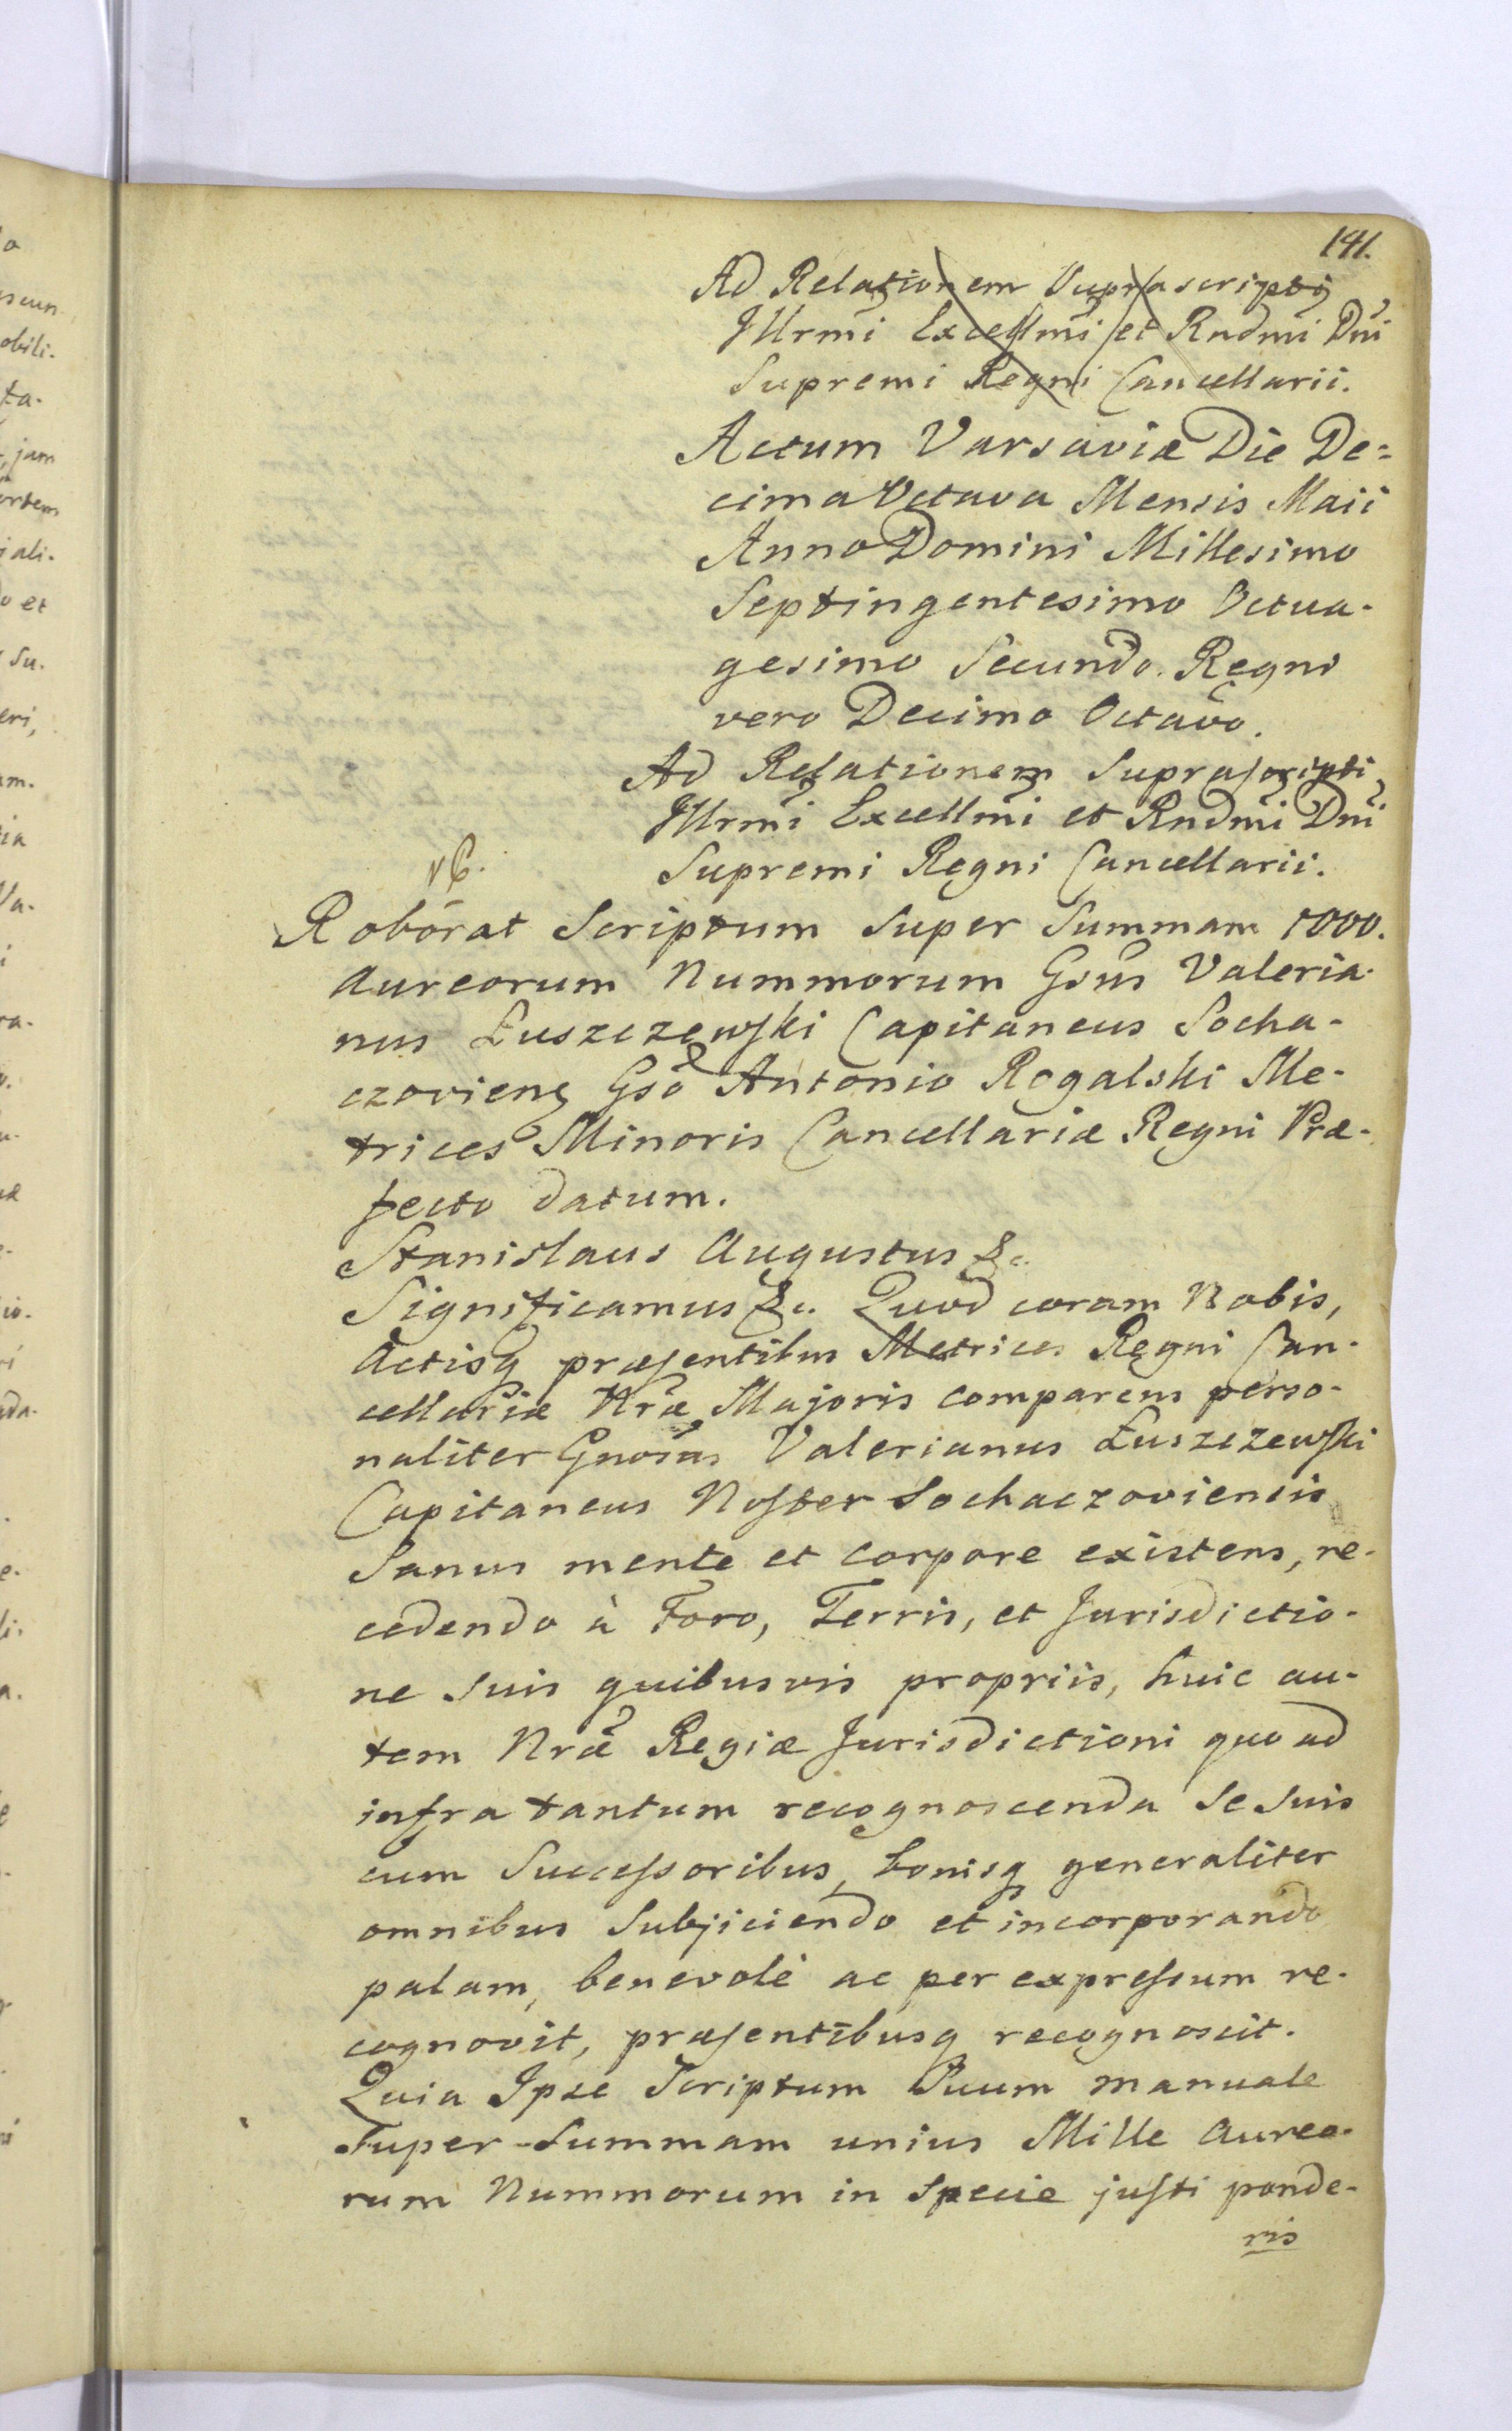 141.
Ad Relationem Suprascripti
Jllrmi Excellmi et Rndmi Dni
Supremi Regni Cancellarii.
Actum Varsaviæ Die De=
cima Octava Mensis Maii
Anno Domini Millesimo
Septingentesimo Octua-
gesimo Secundo. Regni
vero Decimo Octavo.
Ad Relationem Suprascripti
Jllrmi Excellmi et Rndmi Dni
Supremi Regni Cancellarii.
Roborat Scriptum Super Summam 1000.
Aureorum Nummorum Gsus Valeria-
nus Łuszczewski Capitaneus Socha-
czovieng Gso Antonio Rogalski Me-
trices Minoris Cancellariæ Regni Præ-
fecto datum.
Stanislaus Augustus &c.
Significamus &c. Quod coram Nobis,
Actisq præsentibus Metrices Regni Can-
cellariæ Nræ Majoris comparens perso-
naliter Gnosus Valerianus Łuszczewski
Capitaneus Noster Sochaczoviensis
Sanus mente et corpore existens, re-
cedendo à Foro, Terris, et Jurisdictio-
ne suis quibusvis propriis, huic au-
tem Nræ Regiæ Jurisdictioni quo ad
infra tantum recognoscenda Se Suis
cum Successoribus, bonisq generaliter
omnibus Subjiciendo et incorporando
palam, benevolè ac per expressum re-
cognovit, præsentibusq recognoscit.
Quia Ipse Scriptum Suum manuale
Super Summam unius Mille Aureo-
rum Nummorum in Specie justi ponde-
ris